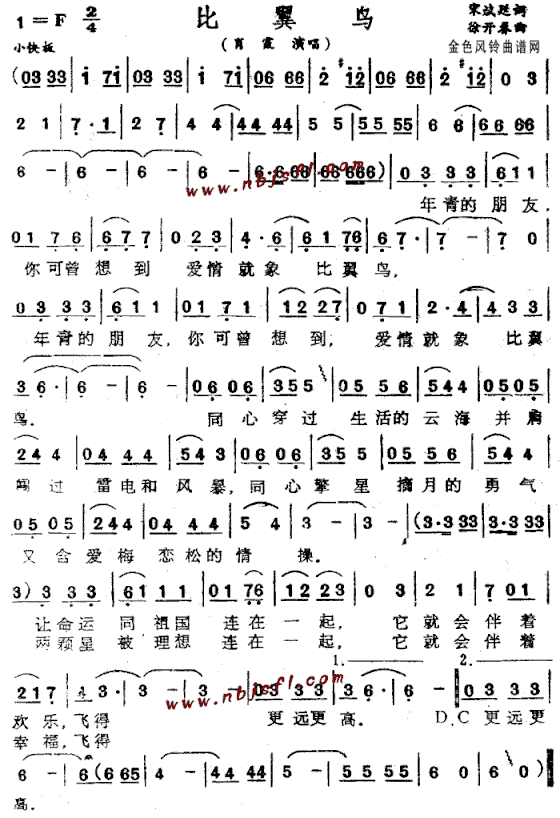 1=F 2/4 比翼鸟
小快板 (肖霞 演唱) 徐开 曲
金色风铃曲谱网
(03 33 | i 7i | 03 33 | i 7i | 06 66 | 2 #i2 | 06 66 | 2 #i2 | 0 3 |
2 1 | 7· 1 | 2 7 | 4 4 | 44 44 | 5 5 | 55 55 | 6 6 | 66 66 |
6 - | 6 - | 6 - | 6 - | 6·6 66 | 66 666) | 03 33 | 6 1 1 |
www.nbjsfl.com
年青的朋友,
01 76 | 6 7 7 | 02 3 | 4· 6 | 61 76 | 6 7· | 7 - | 7 0 |
你可曾想到 爱情就象 比翼鸟,
03 33 | 6 1 1 | 01 71 | 12 27 | 07 1 | 2· 4 | 4 33 |
年青的朋友,你可曾想到; 爱情就象 比翼
3 6· | 6 - | 6 - | 06 06 | 35 5 | 05 56 | 64 4 | 05 05 |
鸟. 同心穿过 生活的云海并肩
24 4 | 04 44 | 54 4 | 06 06 | 35 5 | 05 56 | 64 4 |
过 雷电和风暴,同心擎星摘月的勇气
05 05 | 244 | 04 44 | 5 4 | 3 - | 3 - | (3·3 33 | 3·3 33 |
又含爱梅恋松的情 操.
3) 3 33 | 61 11 | 01 76 | 12 23 | 0 3 | 2 1 | 7 01 |
让命运同祖国 连在一起, 它就会伴着
两颗星被理想 连在一起, 它就会伴着
1. 2.
2 17 | 4 3· | 3 - | 03 33 | 3 6· | 6 - | 03 33 |
www.nbjsfl.com
欢乐,飞得 更远更高. D.C 更远更
幸福,飞得
6 - | 6 (6 65 | 4 - | 44 44 | 5 - | 55 55 | 6 0 | 6 0) |
高.